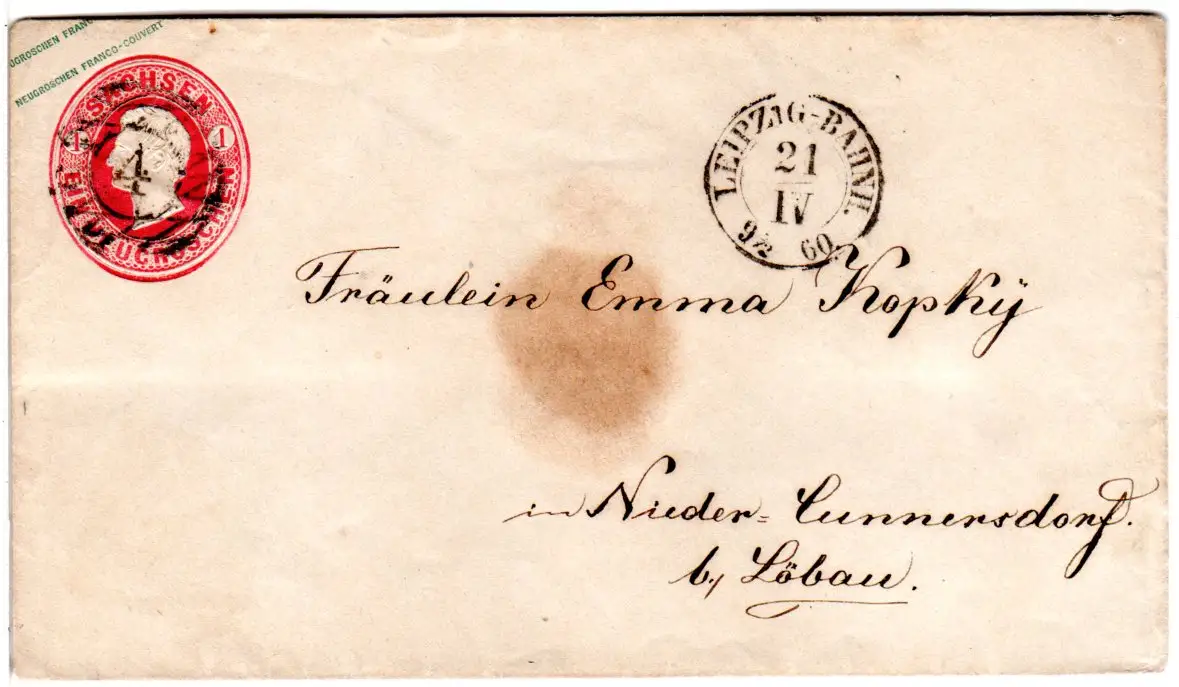 UGROSCHEN FRANC
NEUGROSCHEN FRANCO-COUVERT
SACHSEN
1 1
EIN NEUGROSCHEN
4
LEIPZIG-BAHNH.
21
IV
9½ 60
Fräulein Emma Kopky
in Nieder= Cunnersdorf.
b, Löbau.